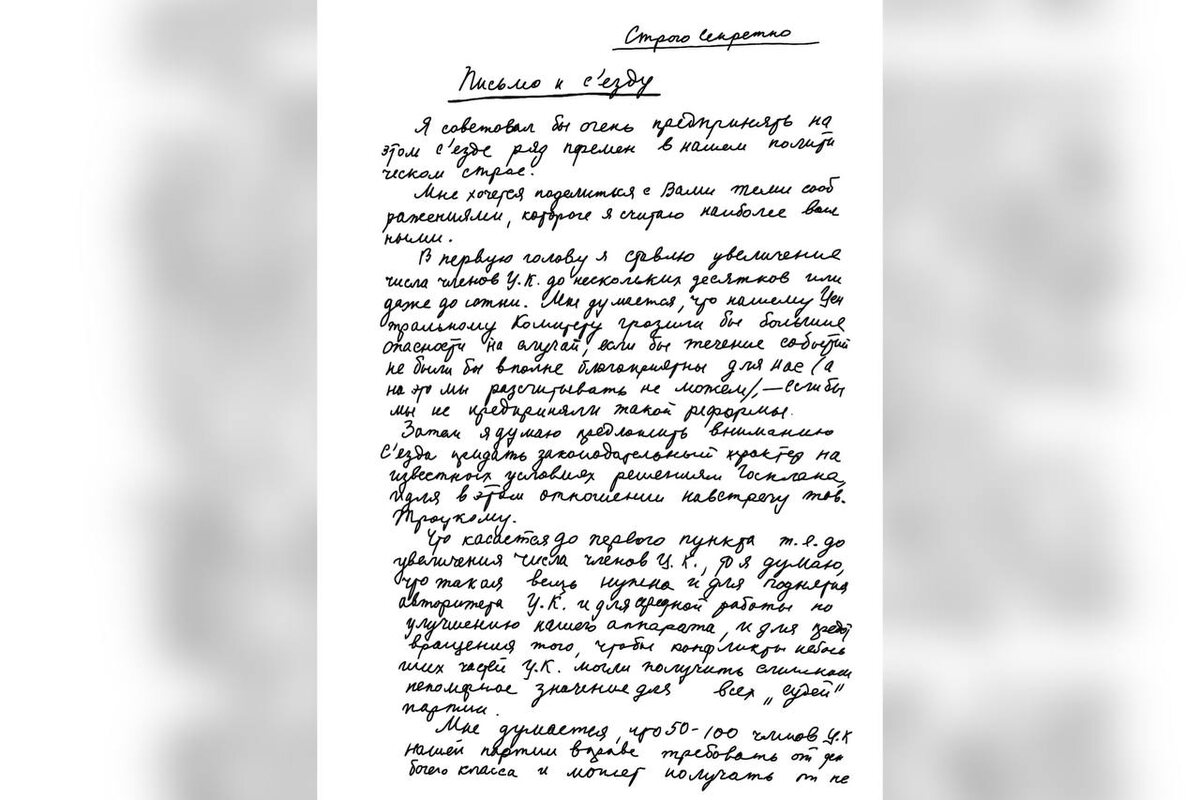 Строго секретно
Письмо к с'езду
Я советовал бы очень предпринять на
этом с'езде ряд перемен в нашем полити
ческом строе.
Мне хочется поделиться с Вами теми сооб
ражениями, которые я считаю наиболее важ
ными.
В первую голову я ставлю увеличение
числа членов Ц.К. до нескольких десятков или
даже до сотни. Мне думается, что нашему Цен
тральному Комитету грозили бы большие
опасности на случай, если бы течение событий
не были бы вполне благоприятны для нас (а
на это мы рассчитывать не можем), – если бы
мы не предприняли такой реформы.
Затем я думаю предложить вниманию
с'езда придать законодательный характер на
известных условиях решениям Госплана,
идя в этом отношении навстречу тов.
Троцкому.
Что касается до первого пункта т.е. до
увеличения числа членов Ц.К., то я думаю,
что такая вещь нужна и для поднятия
авторитета Ц.К. и для работы по
улучшению нашего аппарата, и для предот
вращения того, чтобы конфликты неболь
ших частей Ц.К. могли получить слишком
непомерное значение для всех „судей"
партии.
Мне думается, что 50-100 членов Ц.К
нашей партии вправе требовать от ра
бочего класса и может получать от не